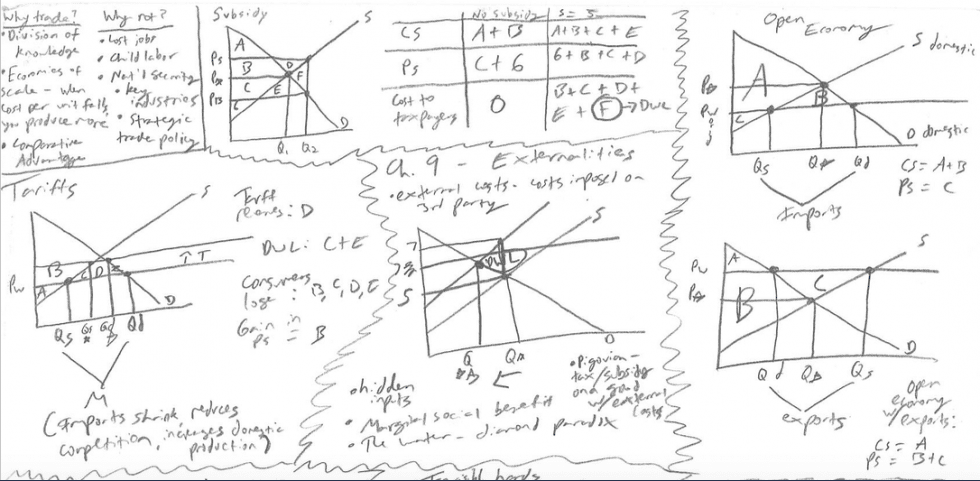 Why trade?
• Division of
knowledge
• Economies of
scale - when
cost per unit falls,
you produce more
• Comparative
Advantage
Why not?
• Lost jobs
• Child labor
• Nat'l security
• key
industries
• Strategic
trade policy
Subsidy
S
A
Ps
B
D
F
C
E
D
Q1 Q2
No subsidy
CS
A + B
A+B+C+E
Ps
C + G
G + B + C + D
Cost to
taxpayers
0
B + C + D +
E + F → DWL
Open Economy
S domestic
A
B
Pw
C
D domestic
Qs
Qd
CS = A + B
PS = C
Imports
Tariffs
S
Tariff
B
C
D
E
↑ T
Pw
A
D
Qs Qs Qd Qd
*
M
(Imports shrink, reduces
competition, increases domestic
production)
revenues: D
DWL: C+E
Consumers
lose : B, C, D, E
Gain in
PS = B
Ch. 9 - Externalities
• external costs - costs imposed on
3rd party
S
DWL
D
• hidden
inputs
• Pigovian -
tax/subsidy
on a good
w/ external
costs
• Marginal social benefit
• The water - diamond paradox
S
Pw
A
C
PA
B
D
Qd QA Qs
exports
Open
economy
w/ exports:
CS = A
PS = B+C